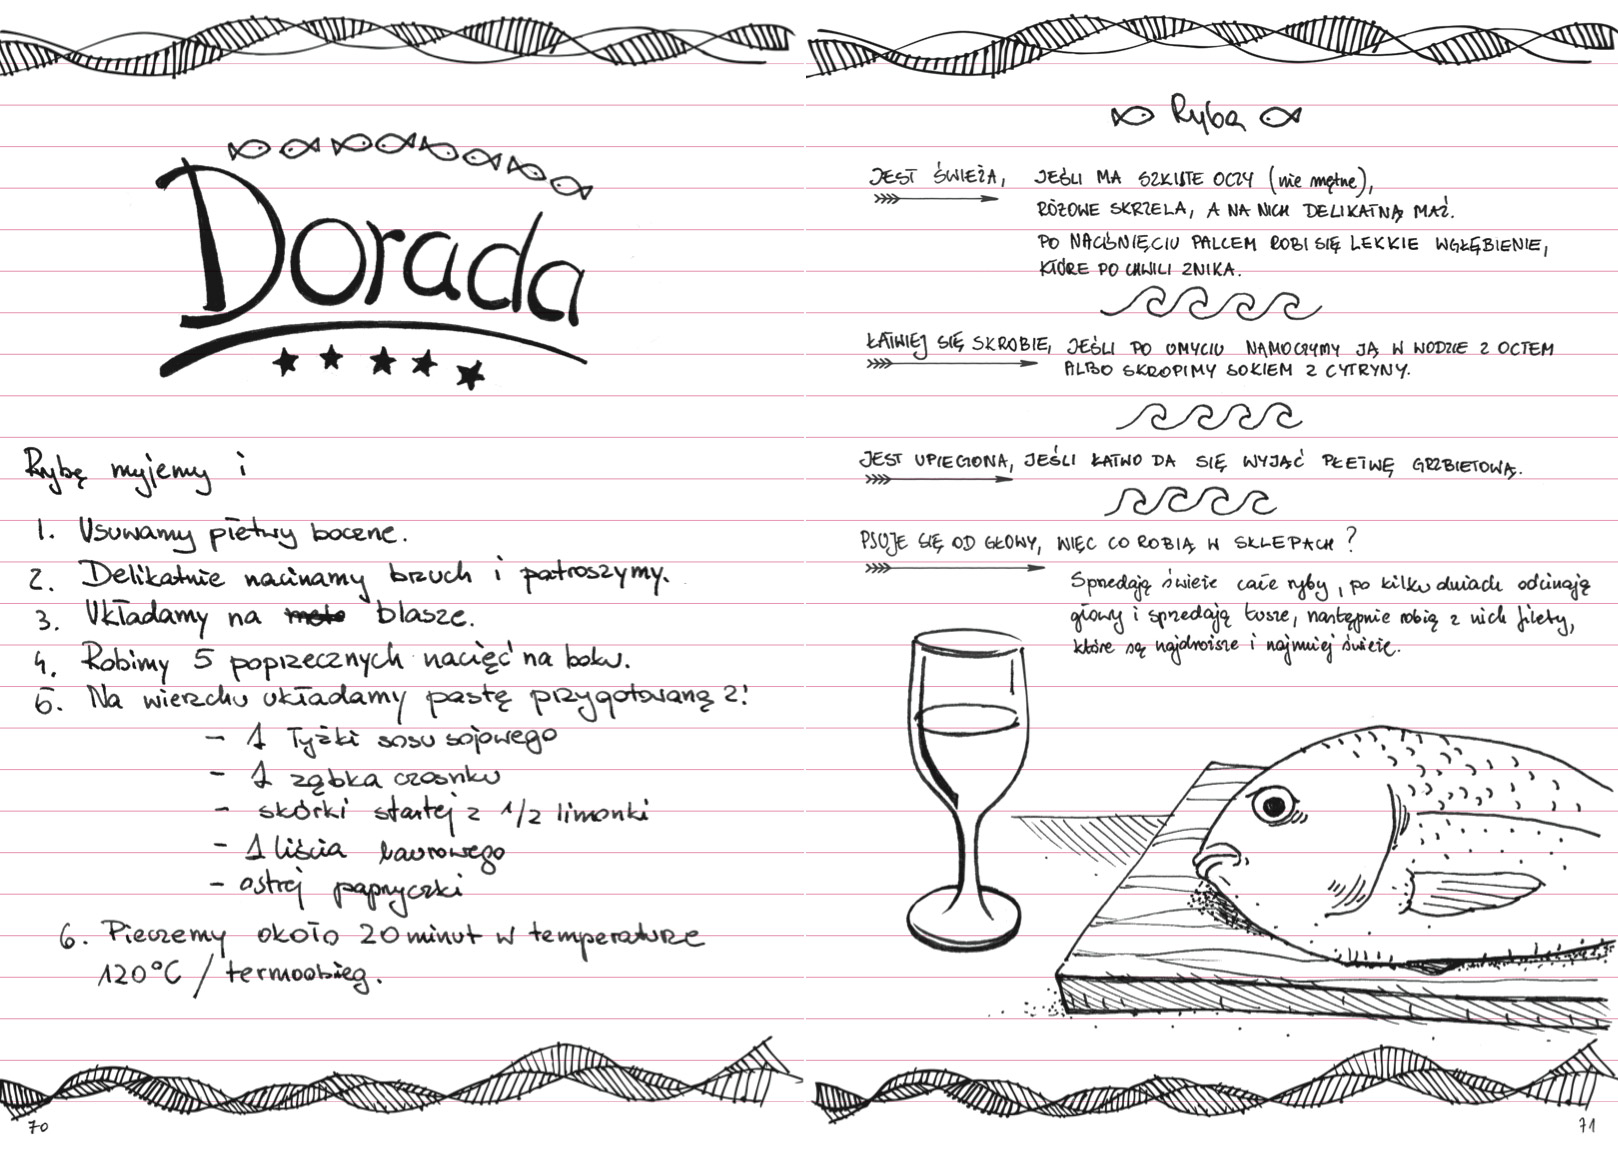 Dorada
Rybę myjemy i
1. Usuwamy płetwy boczne.
2. Delikatnie nacinamy brzuch i patroszymy.
3. Układamy na blasze.
4. Robimy 5 poprzecznych nacięć na boku.
5. Na wierzchu układamy pastę przygotowaną z:
- 1 łyżki sosu sojowego
- 1 ząbka czosnku
- skórki startej z 1/2 limonki
- 1 liścia laurowego
- ostrej papryczki
6. Pieczemy około 20 minut w temperaturze
120°C / termoobieg.
70
Ryba
JEST ŚWIEŻA, JEŚLI MA SZKLISTE OCZY (nie mętne),
RÓŻOWE SKRZELA, A NA NICH DELIKATNĄ MAŹ.
PO NACIŚNIĘCIU PALCEM ROBI SIĘ LEKKIE WGŁĘBIENIE,
KTÓRE PO CHWILI ZNIKA.
ŁATWIEJ SIĘ SKROBIE, JEŚLI PO UMYCIU NAMOCZYMY JĄ W WODZIE Z OCTEM
ALBO SKROPIMY SOKIEM Z CYTRYNY.
JEST UPIECZONA, JEŚLI ŁATWO DA SIĘ WYJĄĆ PŁETWĘ GRZBIETOWĄ.
PSUJE SIĘ OD GŁOWY, WIĘC CO ROBIĄ W SKLEPACH?
Sprzedają świeże całe ryby, po kilku dniach odcinają
głowy i sprzedają tusze, następnie robią z nich filety,
które są najdroższe i najmniej świeże.
71